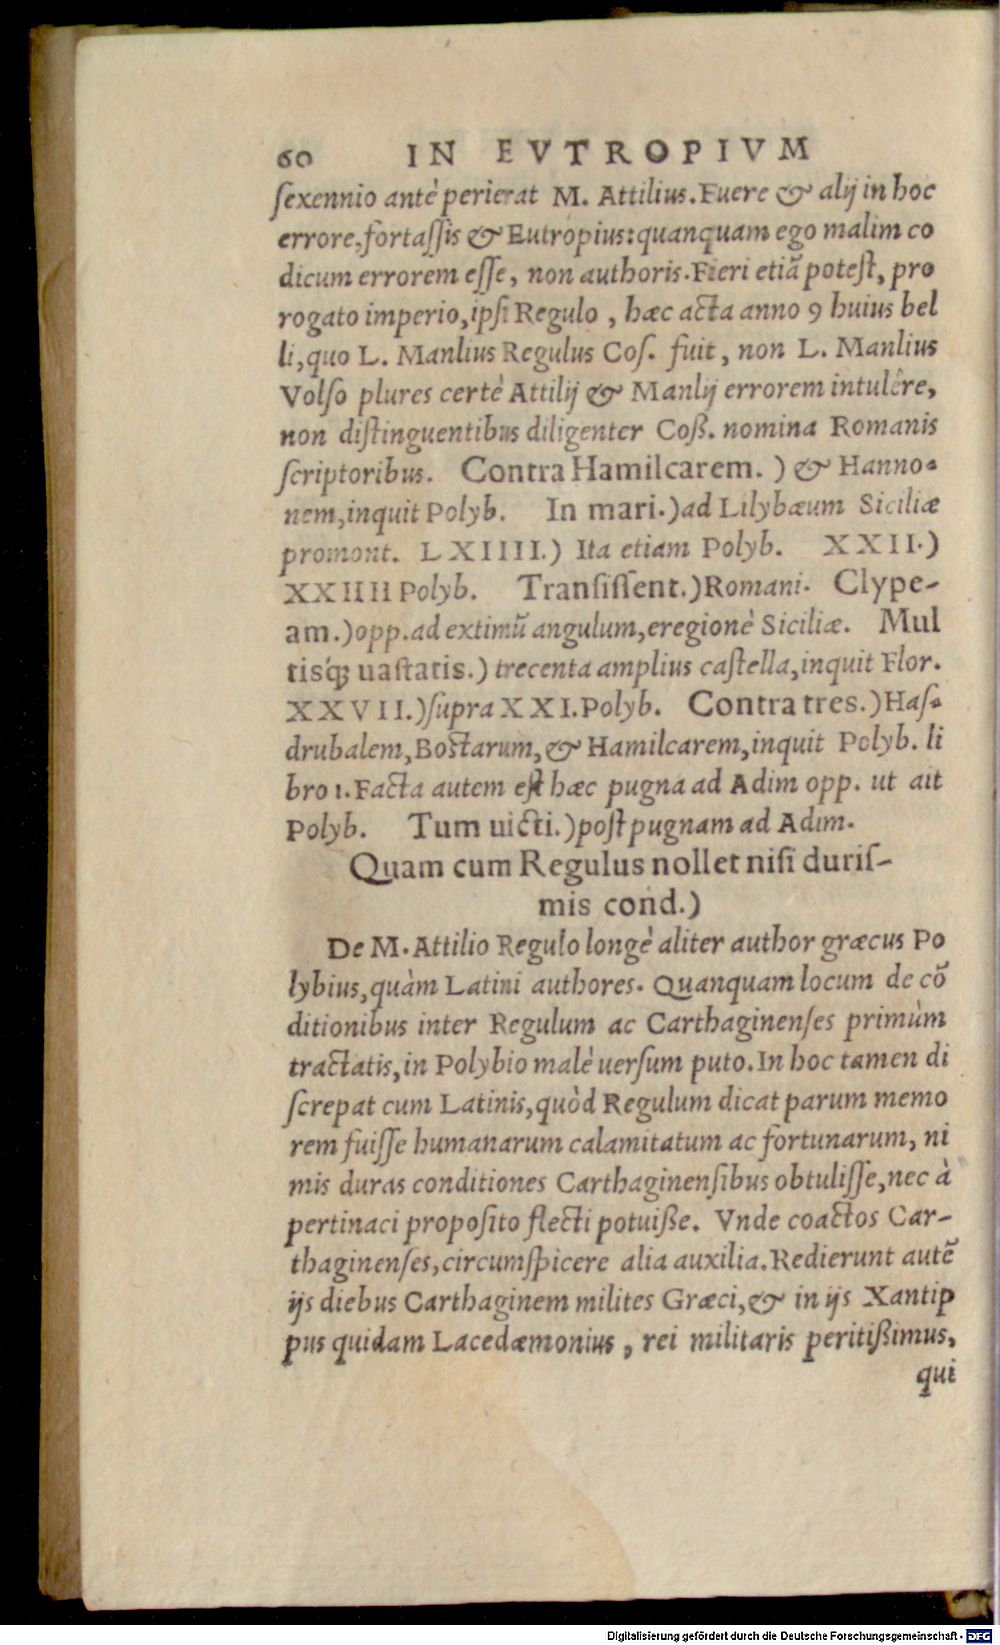 60 IN EVTROPIVM
sexennio antè perierat M. Attilius. Fuere & alij in hoc
errore, fortassis & Eutropius: quanquam ego malim co
dicum errorem esse, non authoris. Fieri etiã potest, pro
rogato imperio, ipsi Regulo, hæc acta anno 9 huius bel
li, quo L. Manlius Regulus Cos. fuit, non L. Manlius
Volso plures certè Attilij & Manlij errorem intulêre,
non distinguentibus diligenter Coß. nomina Romanis
scriptoribus. Contra Hamilcarem. ) & Hanno-
nem, inquit Polyb. In mari.) ad Lilybæum Siciliæ
promont. LXIIII.) Ita etiam Polyb. XXII.)
XXIIII Polyb. Transissent.) Romani. Clype-
am.) opp. ad extimũ angulum, eregionè Siciliæ. Mul
tisq́; uastatis.) trecenta amplius castella, inquit Flor.
XXVII.) supra XXI. Polyb. Contra tres.) Has-
drubalem, Bostarum, & Hamilcarem, inquit Polyb. li
bro 1. Facta autem est hæc pugna ad Adim opp. ut ait
Polyb. Tum uicti.) post pugnam ad Adim.
Quam cum Regulus nollet nisi duris-
mis cond.)
De M. Attilio Regulo longè aliter author græcus Po
lybius, quàm Latini authores. Quanquam locum de cõ
ditionibus inter Regulum ac Carthaginenses primùm
tractatis, in Polybio malè uersum puto. In hoc tamen di
screpat cum Latinis, quòd Regulum dicat parum memo
rem fuisse humanarum calamitatum ac fortunarum, ni
mis duras conditiones Carthaginensibus obtulisse, nec à
pertinaci proposito flecti potuiße. Vnde coactos Car-
thaginenses, circumspicere alia auxilia. Redierunt autẽ
ijs diebus Carthaginem milites Græci, & in ijs Xantip
pus quidam Lacedæmonius, rei militaris peritißimus,
qui
Digitalisierung gefördert durch die Deutsche Forschungsgemeinschaft - DFG